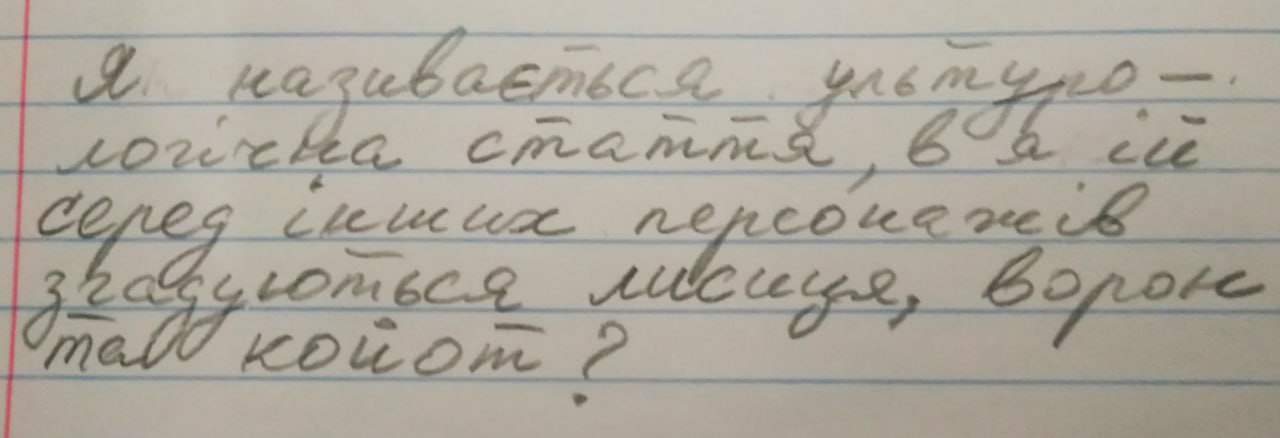 Я називається ультуро-
логічна стаття, в я ій
серед інших персонажів
згадуються лисиця, ворон
та койот?